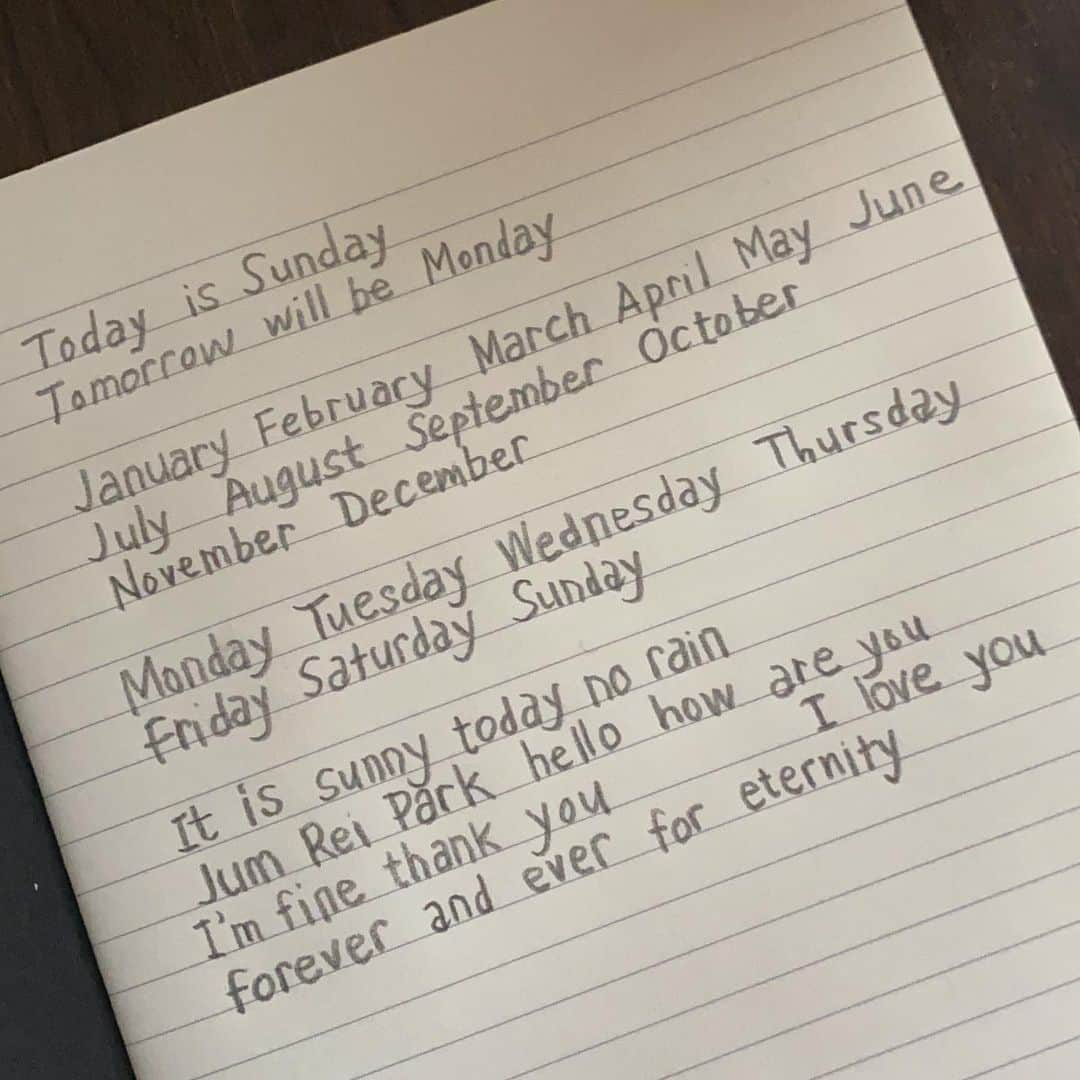 Today is Sunday
Tomorrow will be Monday
January February March April May June
July August September October
November December
Monday Tuesday Wednesday Thursday
Friday Saturday Sunday
It is sunny today no rain
Jum Rei Park hello how are you
I'm fine thank you I love you
forever and ever for eternity